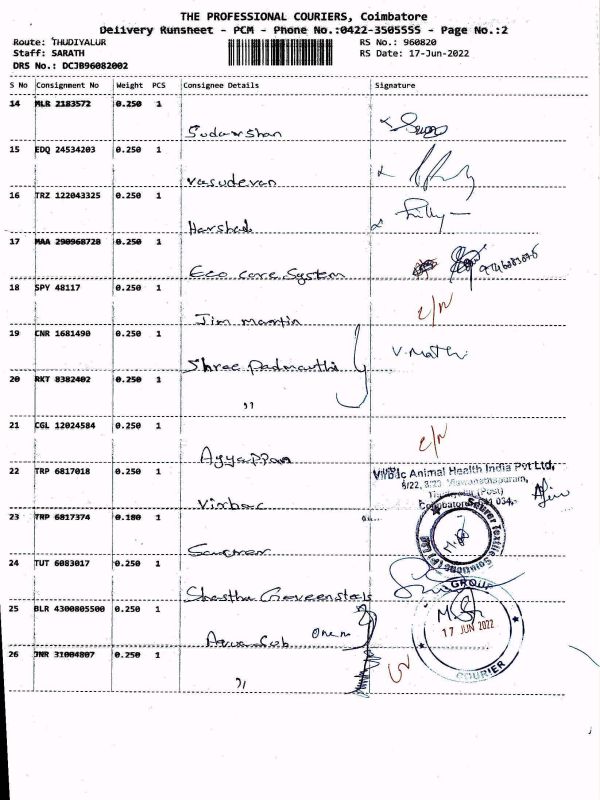 THE PROFESSIONAL COURIERS, Coimbatore
Delivery Runsheet - PCM - Phone No.:0422-3505555 - Page No.:2
Route: THUDIYALUR
Staff: SARATH
DRS No.: DCJB96082002
RS No.: 960820
RS Date: 17-Jun-2022
S No Consignment No Weight PCS Consignee Details Signature
14 MLR 2183572 0.250 1
Sudarshan
15 EDQ 24534203 0.250 1
Vasudevan
16 TRZ 122043325 0.250 1
Harshad
17 MAA 290968720 0.250 1
Eco care System
18 SPY 48117 0.250 1
Jim martin
19 CNR 1681490 0.250 1
Shree Padmavathi V. Mathi
20 RKT 8382402 0.250 1
"
21 CGL 12024584 0.250 1
Ayyappan
22 TRP 6817018 0.250 1
Virbac Animal Health India Pvt Ltd,
6/22, 8/23 Viswanathapuram,
(Post)
Coimbatore 034.
Virbac
23 TRP 6817374 0.180 1
Saurer Textile Solutions (P) Ltd
24 TUT 6083017 0.250 1
25 BLR 4300805500 0.250 1
GROUP
17 JUN 2022
COURIER
26 JNR 31004807 0.250 1
"